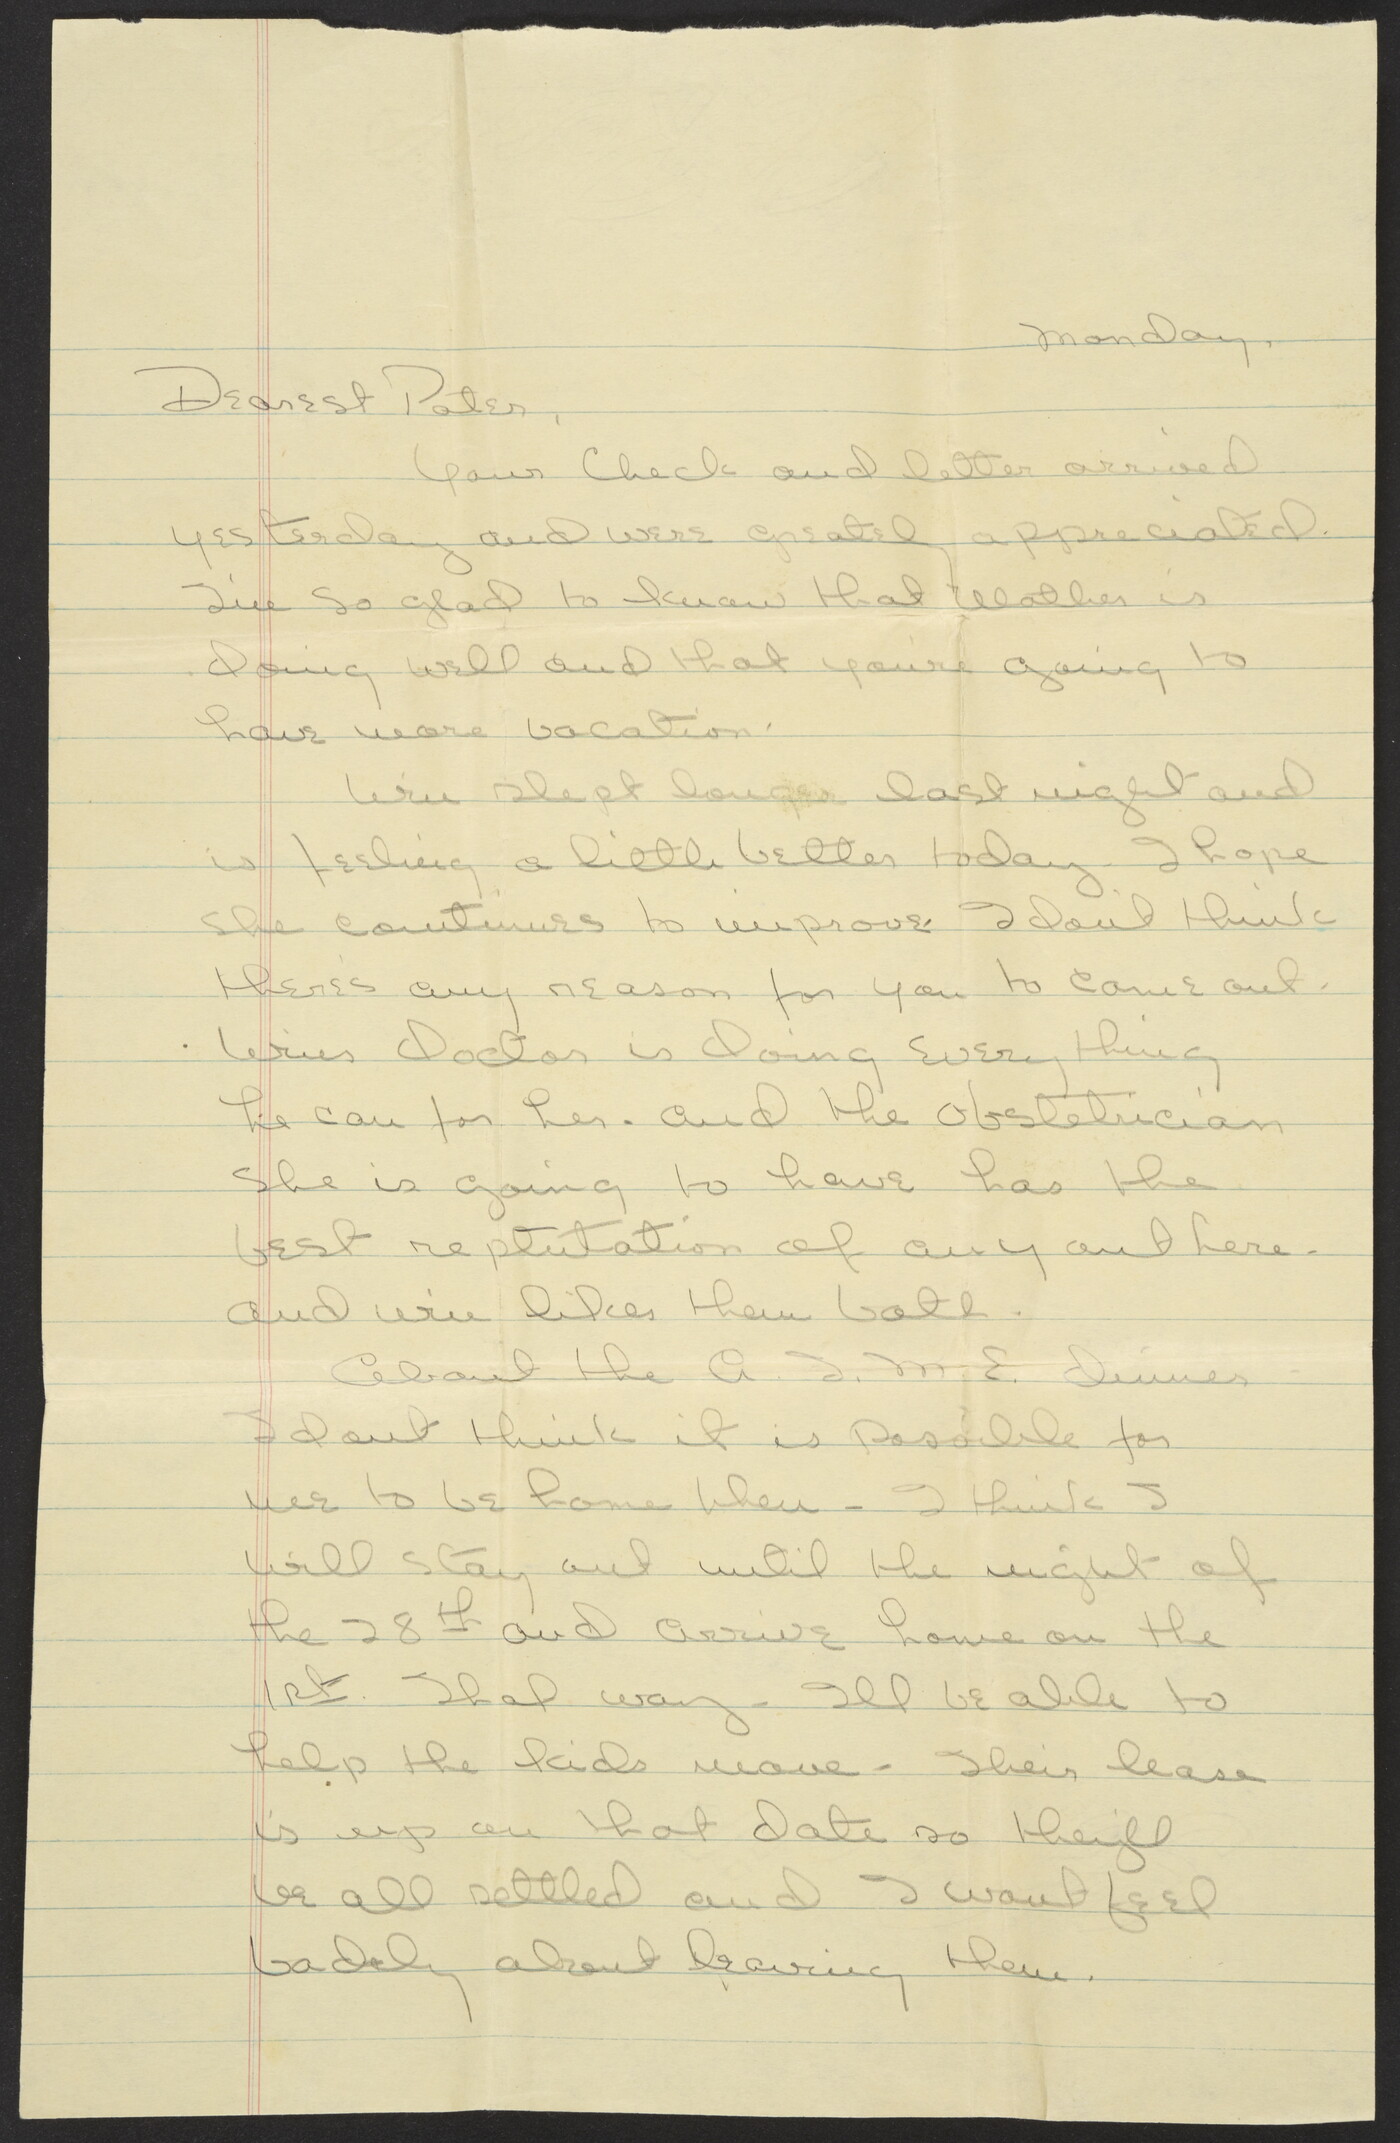 Monday,
Dearest Pater,
Your Check and letter arrived
yesterday and were greately appreciated.
I'm so glad to know that Mother is
doing well and that you're going to
have more vacation.
Win slept longer last night and
is feeling a little better today. I hope
she continues to improve. I don't think
there's any reason for you to come out.
Win's doctor is doing everything
he can for her. and the obstetrician
she is going to have has the
best reptutation of any out here -
and win likes them both.
About the A. I. M. E. dinner -
I dont think it is possible for
me to be home then - I think I
will stay out until the night of
the 28th and arrive home on the
1st. That way - I'll be able to
help the kids move - Their lease
is up on that date so they'll
be all settled and I wont feel
badly about leaving them.